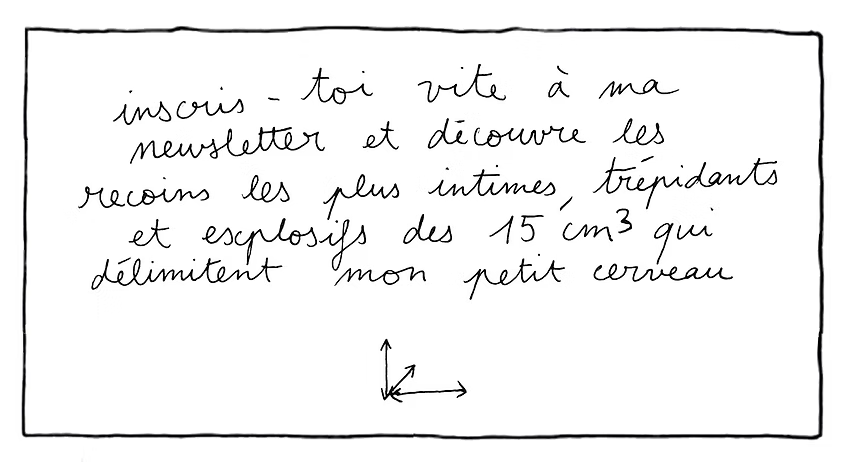 inscris-toi vite à ma
newsletter et découvre les
recoins les plus intimes, trépidants
et explosifs des 15 cm³ qui
délimitent mon petit cerveau